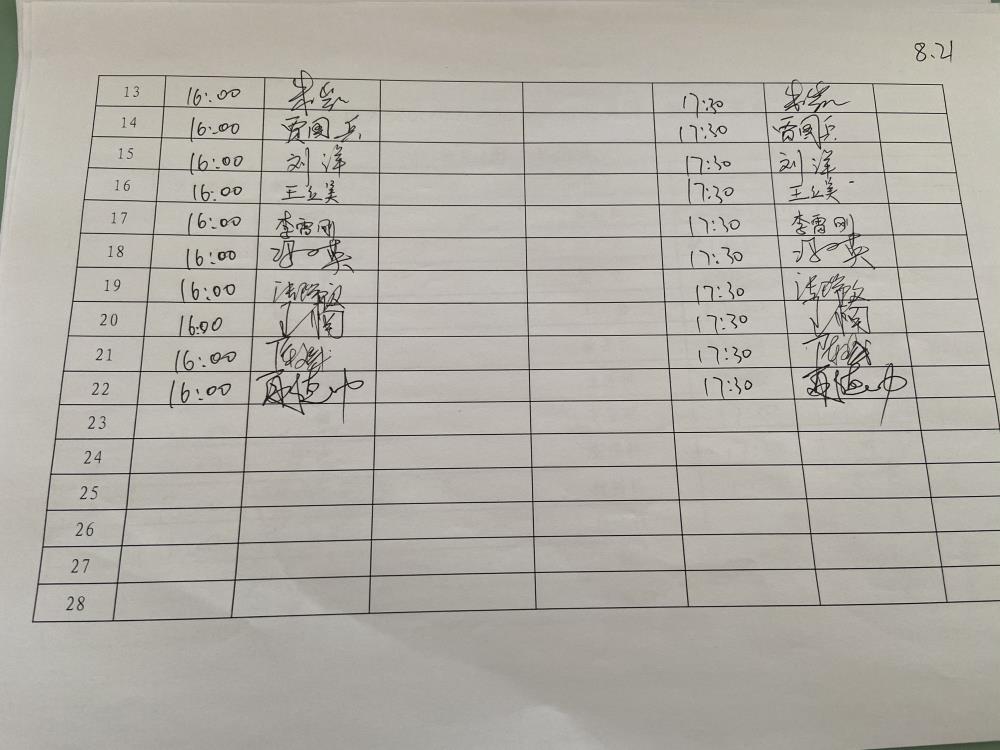 8.21
13 16:00 17:30
14 16:00 贾国兵 17:30 贾国兵
15 16:00 刘洋 17:30 刘洋
16 16:00 王立美 17:30 王立美
17 16:00 李雷刚 17:30 李雷刚
18 16:00 17:30
19 16:00 17:30
20 16:00 17:30
21 16:00 17:30
22 16:00 17:30
23
24
25
26
27
28